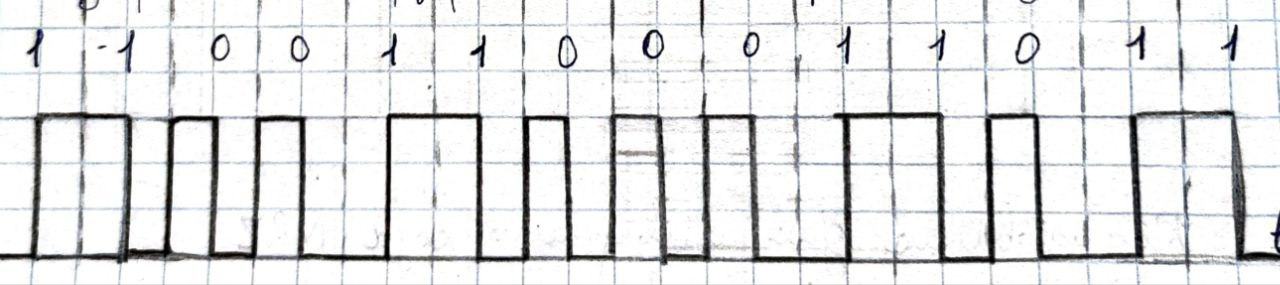 1 -1 0 0 1 1 0 0 0 1 1 0 1 1